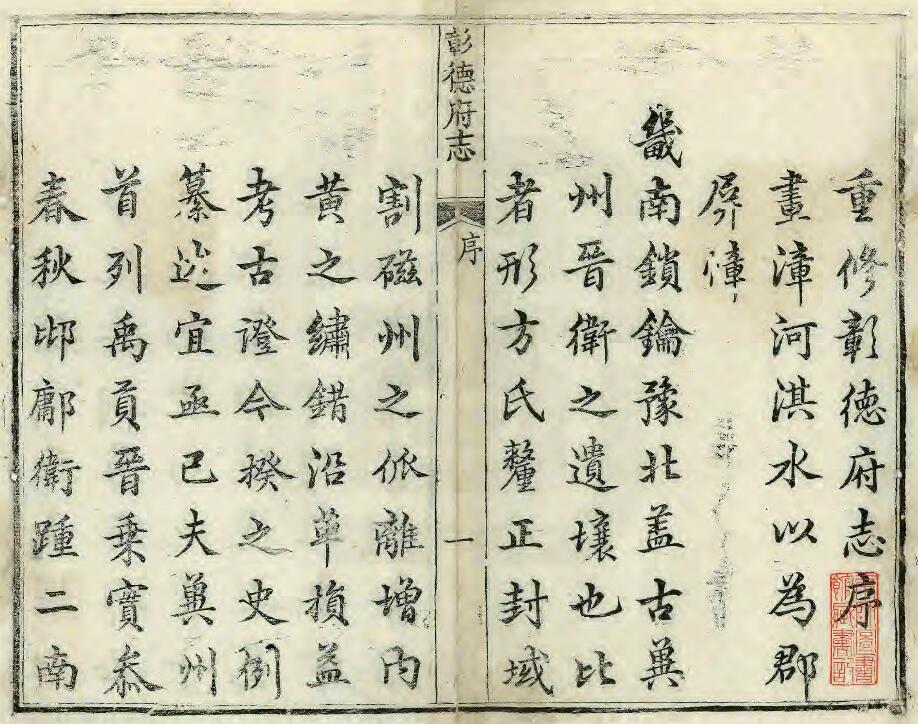 重修彰德府志序
畫漳河淇水以為郡
屏漳
畿南鎖鑰豫北蓋古冀
州晉衛之遺壤也比
者形方氏釐正封域
彰德府志
序
一
割磁州之仳離增內
黃之繡錯沿革損益
考古證今揆之史例
纂述宜亟已夫冀州
首列禹貢晉乗實叅
春秋邶鄘衛踵二南